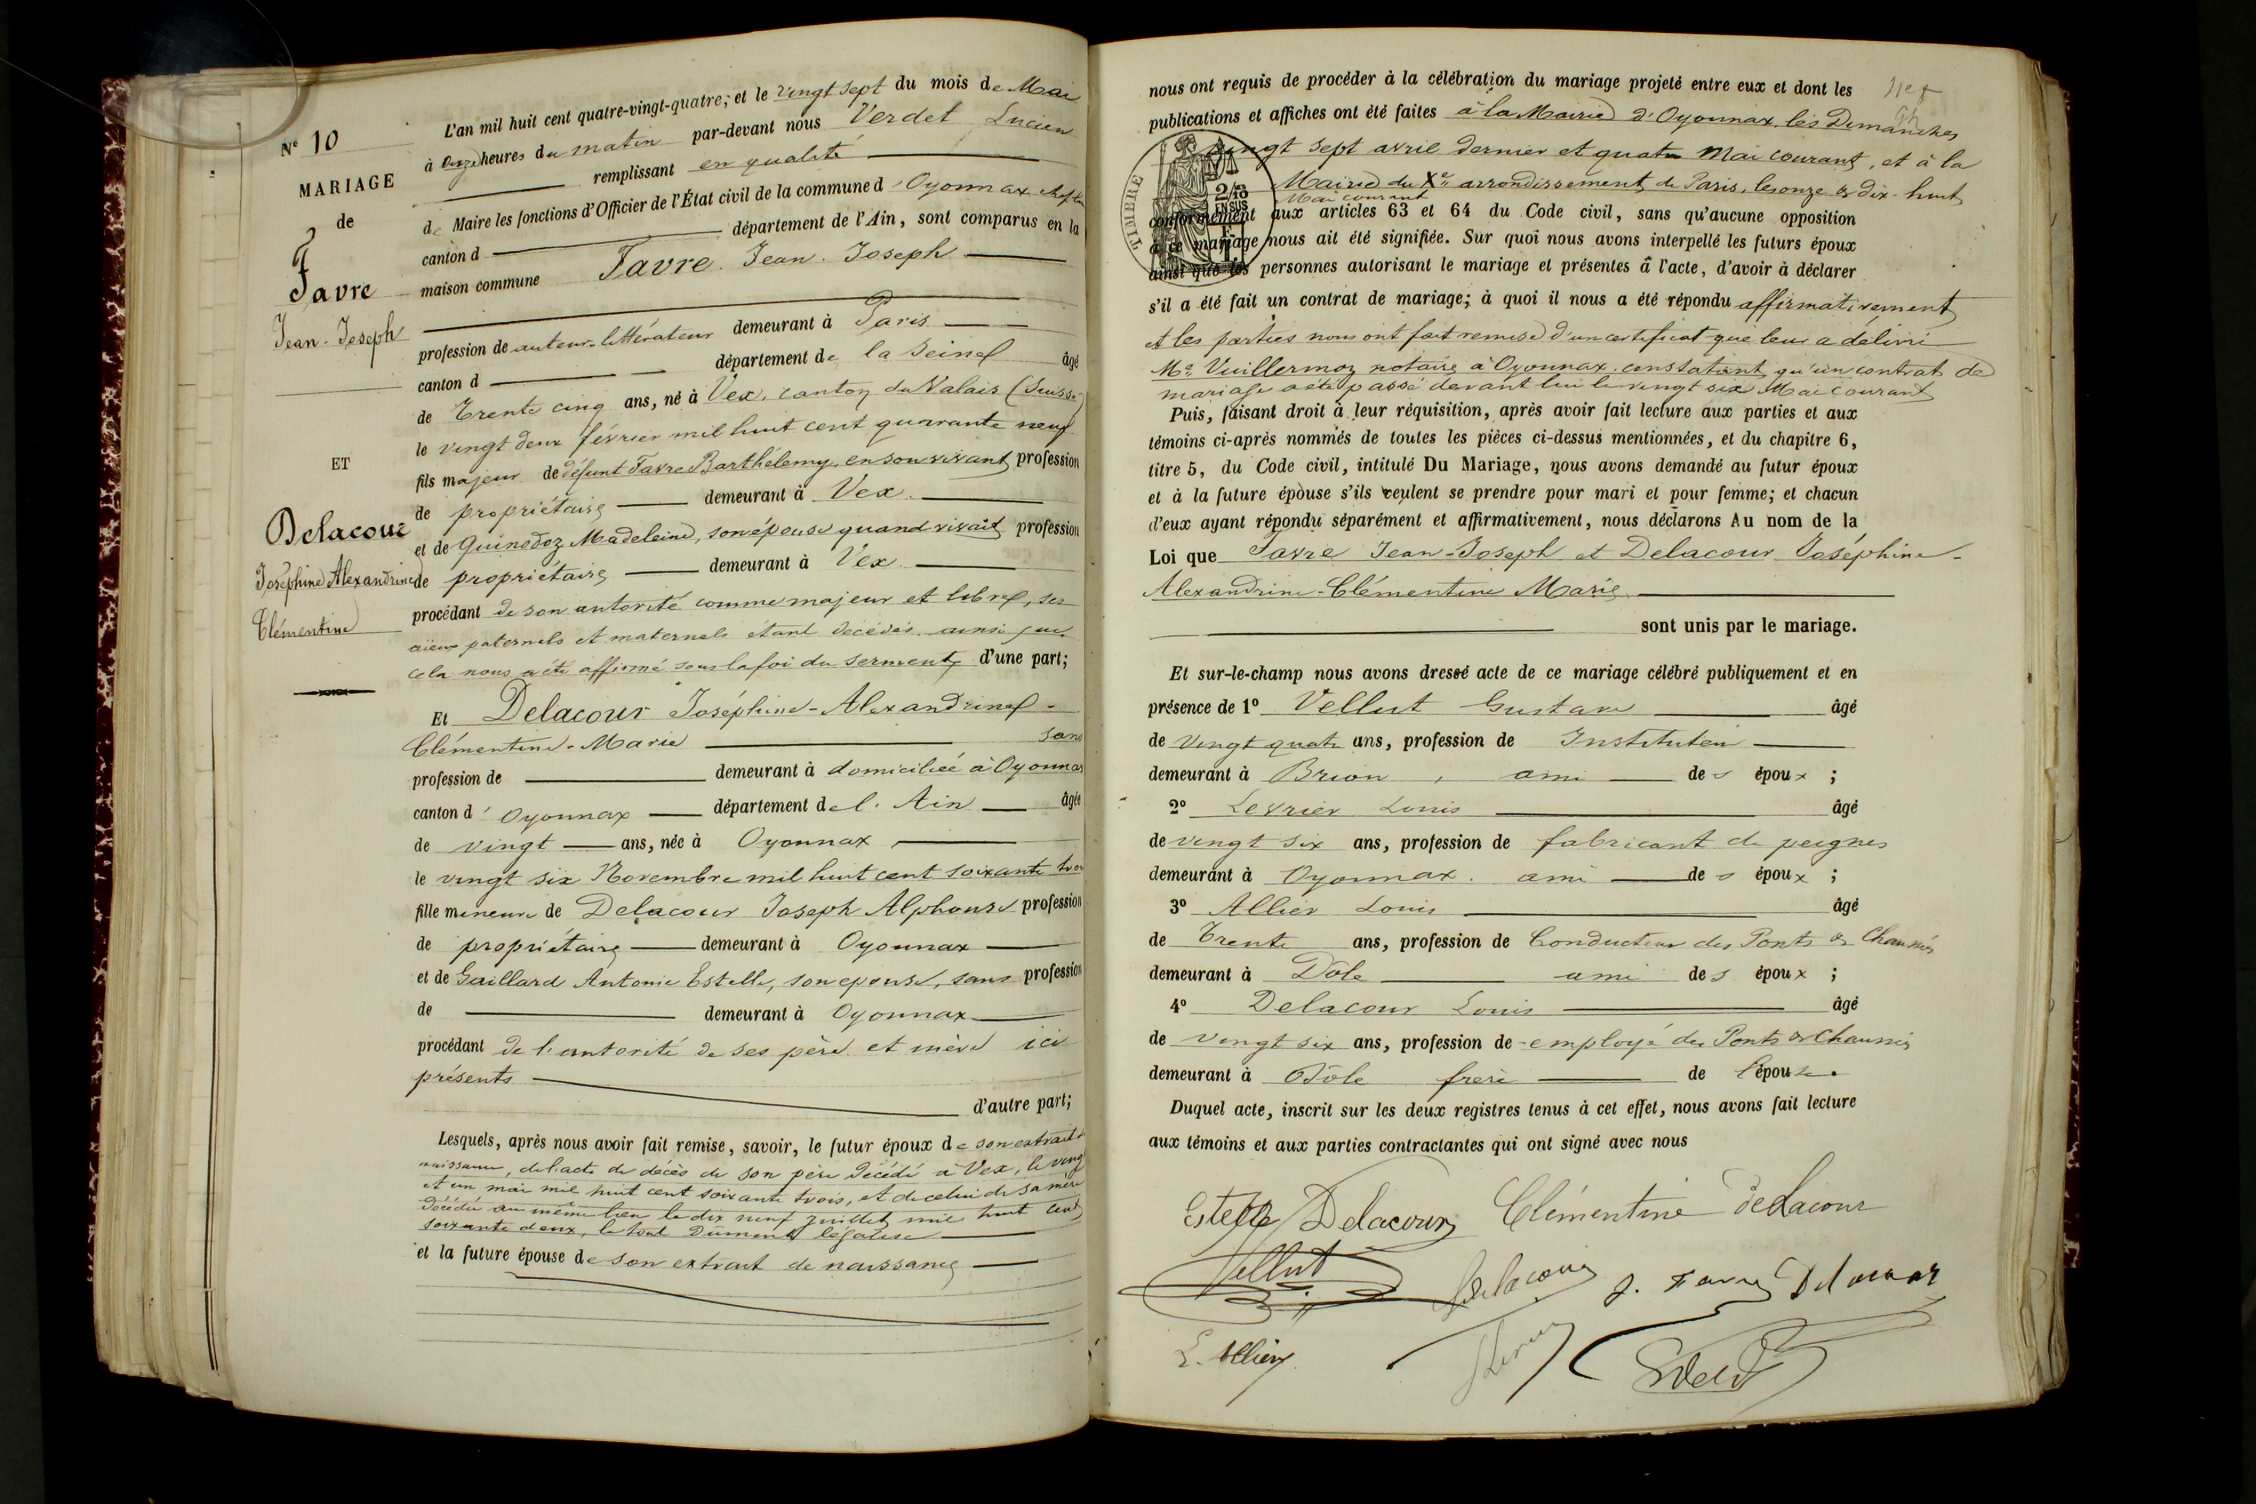 N° 10
MARIAGE
de
Favre
Jean-Joseph
ET
Delacour
Joséphine Alexandrine
Clémentine
L'an mil huit cent quatre-vingt-quatre, et le vingt sept du mois de Mai
à onze heures du matin par-devant nous Verdet Lucien
remplissant en qualité
de Maire les fonctions d'Officier de l'État civil de la commune d'Oyonnax
canton d département de l'Ain, sont comparus en la
maison commune Favre Jean Joseph
profession de auteur-littérateur demeurant à Paris
canton d département de la Seine âgé
de Trente cinq ans, né à Vex, canton du Valais (Suisse)
le vingt deux février mil huit cent quarante neuf
fils majeur de défunt Favre Barthélemy, en son vivant profession
de propriétaire demeurant à Vex
et de Quinodoz Madeleine, son épouse quand vivait profession
de propriétaire demeurant à Vex
procédant de son autorité comme majeur et libre, ses
aïeux paternels et maternels étant décédés ainsi que
cela nous a été affirmé sous la foi du serment d'une part;
Et Delacour Joséphine-Alexandrine-
Clémentine-Marie sans
profession de demeurant à domiciliée à Oyonnax
canton d'Oyonnax département de l'Ain âgée
de vingt ans, née à Oyonnax
le vingt six Novembre mil huit cent soixante trois
fille mineure de Delacour Joseph Alphonse profession
de propriétaire demeurant à Oyonnax
et de Gaillard Antonie Estelle, son épouse, sans profession
de demeurant à Oyonnax
procédant de l'autorité de ses père et mère ici
présents
d'autre part;
Lesquels, après nous avoir fait remise, savoir, le futur époux de son extrait de
naissance, de l'acte de décès de son père décédé à Vex, le vingt
et un mai mil huit cent soixante trois, et de celui de sa mère
décédée au même lieu le dix neuf juillet mil huit cent
soixante deux, le tout dûment légalisé
et la future épouse de son extrait de naissance
nous ont requis de procéder à la célébration du mariage projeté entre eux et dont les
publications et affiches ont été faites à la Mairie d'Oyonnax les Dimanches
vingt sept avril dernier et quatre Mai courant, et à la
Mairie du Xe arrondissement de Paris, les onze & dix-huit
Mai courant
TIMBRE
2/10 EN SUS
conformément aux articles 63 et 64 du Code civil, sans qu'aucune opposition
à ce mariage nous ait été signifiée. Sur quoi nous avons interpellé les futurs époux
ainsi que les personnes autorisant le mariage et présentes à l'acte, d'avoir à déclarer
s'il a été fait un contrat de mariage; à quoi il nous a été répondu affirmativement
et les parties nous ont fait remise d'un certificat que leur a délivré
Me Vuillermoz notaire à Oyonnax constatant qu'un contrat de
mariage a été passé devant lui le vingt six Mai courant
Puis, faisant droit à leur réquisition, après avoir fait lecture aux parties et aux
témoins ci-après nommés de toutes les pièces ci-dessus mentionnées, et du chapitre 6,
titre 5, du Code civil, intitulé Du Mariage, nous avons demandé au futur époux
et à la future épouse s'ils veulent se prendre pour mari et pour femme; et chacun
d'eux ayant répondu séparément et affirmativement, nous déclarons Au nom de la
Loi que Favre Jean-Joseph et Delacour Joséphine-
Alexandrine-Clémentine Marie
sont unis par le mariage.
Et sur-le-champ nous avons dressé acte de ce mariage célébré publiquement et en
présence de 1° Vellut Gustave âgé
de vingt quatre ans, profession de Instituteur
demeurant à Brion, ami des époux;
2° Levrier Louis âgé
de vingt six ans, profession de fabricant de peignes
demeurant à Oyonnax. ami des époux;
3° Allier Louis âgé
de Trente ans, profession de Conducteur des Ponts & Chaussées
demeurant à Dôle ami des époux;
4° Delacour Louis âgé
de vingt six ans, profession de employé des Ponts & Chaussées
demeurant à Dôle frère de l'épouse.
Duquel acte, inscrit sur les deux registres tenus à cet effet, nous avons fait lecture
aux témoins et aux parties contractantes qui ont signé avec nous
Estelle Delacour Clémentine Delacour
Vellut Delacour J. Favre Delacour
L. Allier